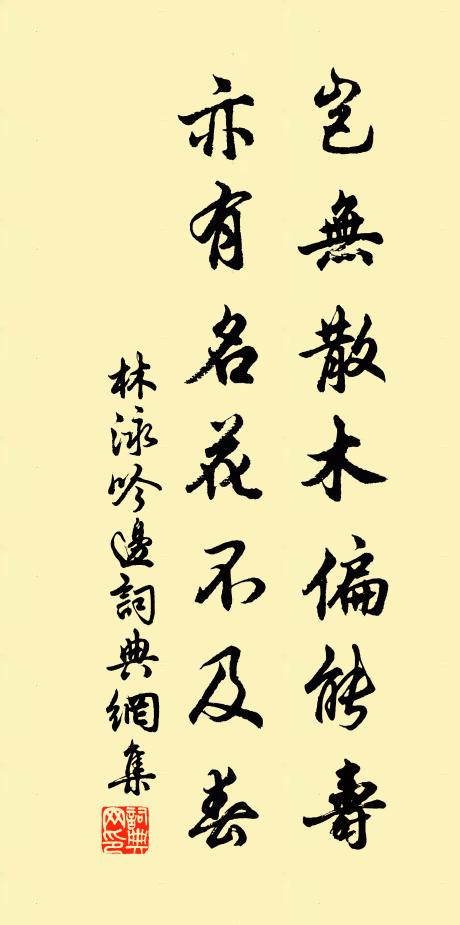 豈無散木偏能壽
亦有名花不及春
林泳吟邊詞典網集
詞典網印